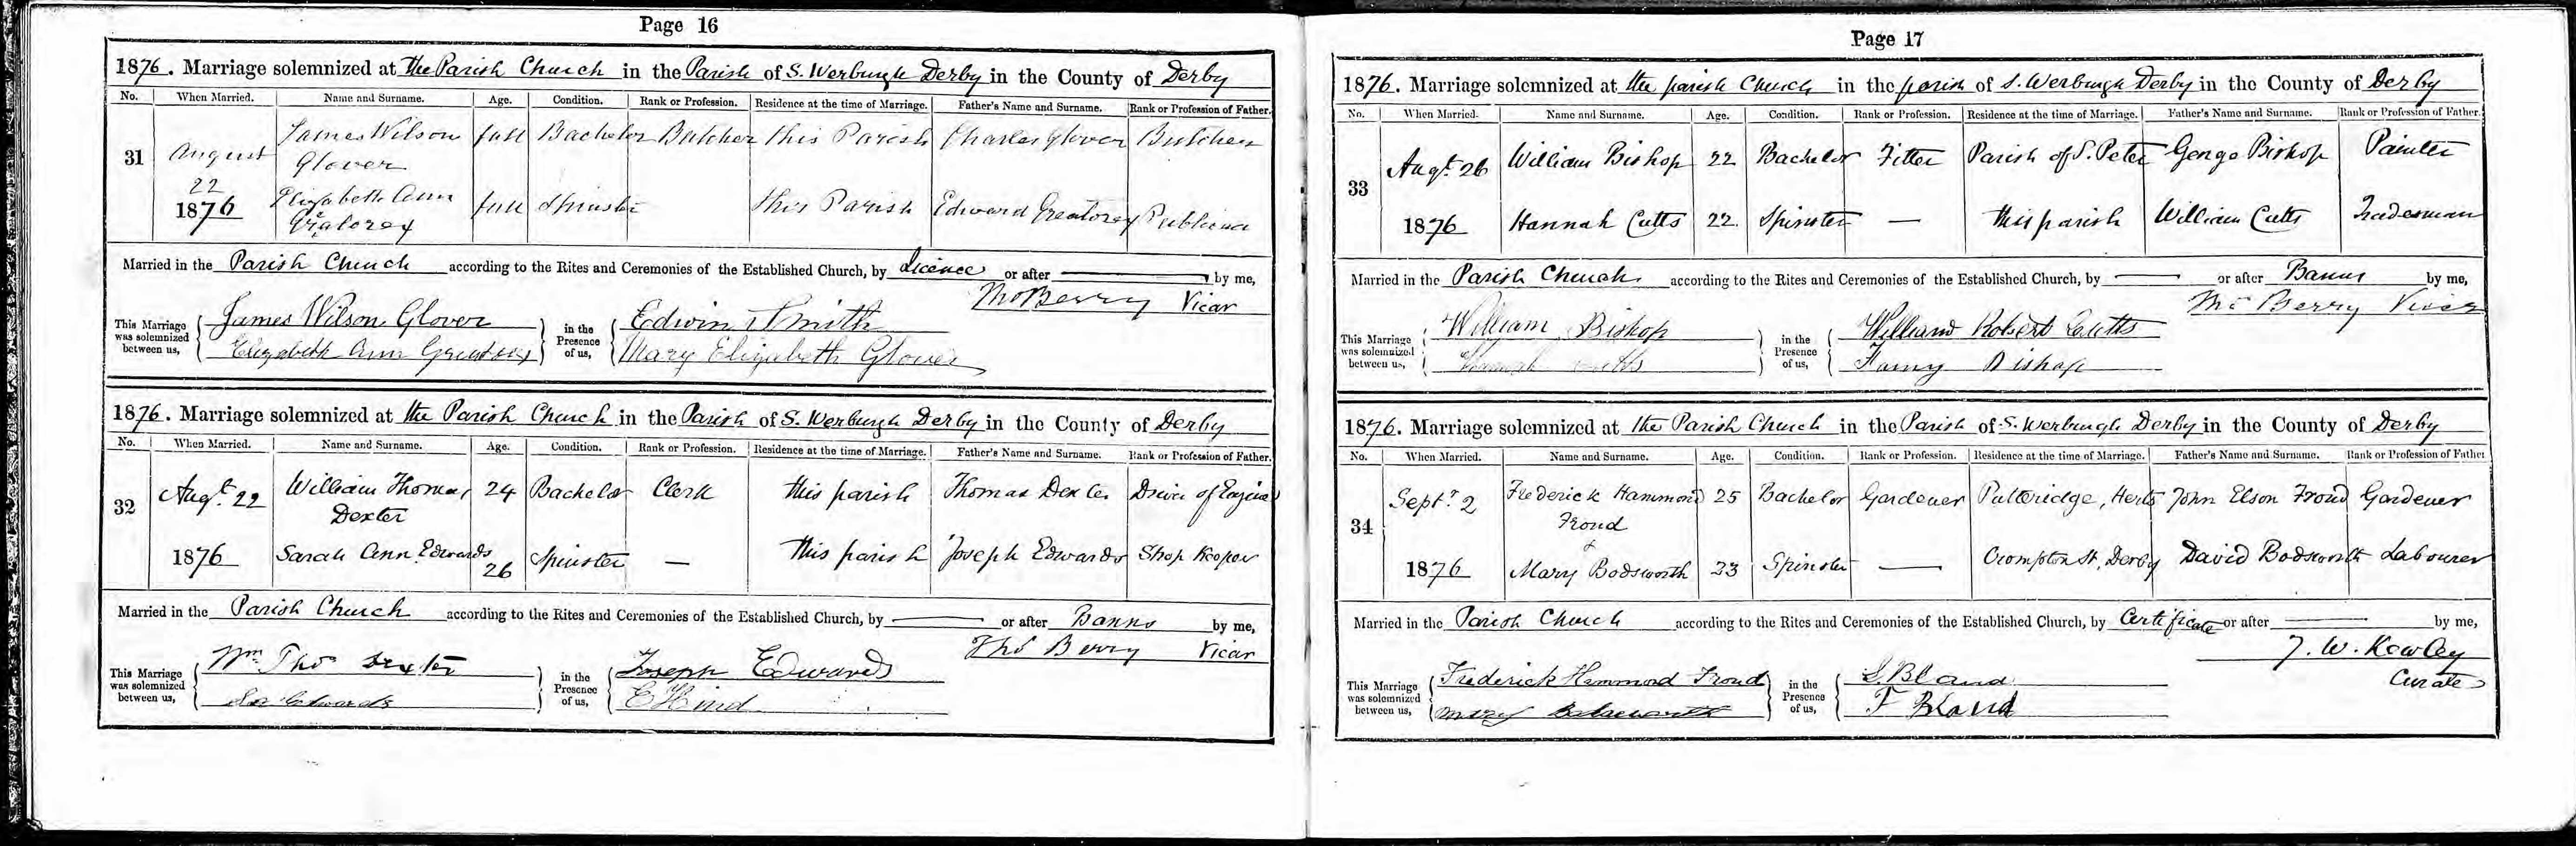 Page 16
1876. Marriage solemnized at the Parish Church in the Parish of S. Werburgh Derby in the County of Derby
No. When Married. Name and Surname. Age. Condition. Rank or Profession. Residence at the time of Marriage. Father's Name and Surname. Rank or Profession of Father.
31 August 22 1876
James Wilson Glover full Bachelor Butcher this Parish Charles Glover Butcher
Elizabeth Ann Greatorex full Spinster this Parish Edward Greatorex Publican
Married in the Parish Church according to the Rites and Ceremonies of the Established Church, by Licence or after by me,
Tho Berry Vicar
This Marriage was solemnized between us, James Wilson Glover in the Presence of us, Edwin Smith
Elizabeth Ann Greatorex Mary Elizabeth Glover
1876. Marriage solemnized at the Parish Church in the Parish of S. Werburgh Derby in the County of Derby
No. When Married. Name and Surname. Age. Condition. Rank or Profession. Residence at the time of Marriage. Father's Name and Surname. Rank or Profession of Father.
32 Augt. 22 1876
William Thomas Dexter 24 Bachelor Clerk this parish Thomas Dexter Driver of Engine
Sarah Ann Edwards 26 Spinster — this parish Joseph Edwards Shop Keeper
Married in the Parish Church according to the Rites and Ceremonies of the Established Church, by — or after Banns by me,
Tho Berry Vicar
This Marriage was solemnized between us, Wm Thos Dexter in the Presence of us, Joseph Edwards
Edwards E Hind
Page 17
1876. Marriage solemnized at the parish Church in the parish of S. Werburgh Derby in the County of Derby
No. When Married. Name and Surname. Age. Condition. Rank or Profession. Residence at the time of Marriage. Father's Name and Surname. Rank or Profession of Father.
33 Augt. 26 1876
William Bishop 22 Bachelor Fitter Parish of S. Peter George Bishop Painter
Hannah Cutts 22 Spinster — this parish William Cutts Tradesman
Married in the Parish Church according to the Rites and Ceremonies of the Established Church, by — or after Banns by me,
Tho Berry Vicar
This Marriage was solemnized between us, William Bishop in the Presence of us, William Robert Cutts
Hannah Cutts Fanny Bishop
1876. Marriage solemnized at the Parish Church in the Parish of S. Werburgh Derby in the County of Derby
No. When Married. Name and Surname. Age. Condition. Rank or Profession. Residence at the time of Marriage. Father's Name and Surname. Rank or Profession of Father
34 Septr. 2 1876
Frederick Hammond Froud 25 Bachelor Gardener Putteridge, Herts John Elson Froud Gardener
& Mary Bodsworth 23 Spinster — Crompton St, Derby David Bodsworth Labourer
Married in the Parish Church according to the Rites and Ceremonies of the Established Church, by Certificate or after — by me,
J. W. Kewley
Curate
This Marriage was solemnized between us, Frederick Hammond Froud in the Presence of us, S. Bland
Mary Bodsworth F Bland